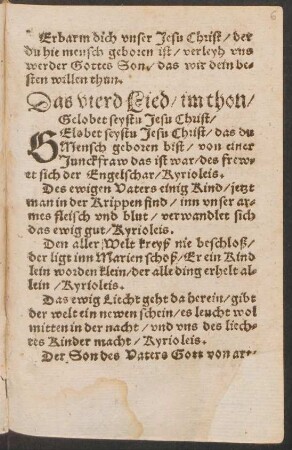 6
Erbarm dich vnser Jesu Christ / der
du hie mensch geboren ist / verleyh vns
werder Gottes Son / das wir dein be-
sten willen thun.
Das vierd Lied / im thon /
Gelobet seystu Jesu Christ /
GElobet seystu Jesu Christ / das du
Mensch geboren bist / von einer
Junckfraw das ist war / des frew-
et sich der Engelschar / Kyrioleis.
Des ewigen Vaters einig Kind / jetzt
man in der Krippen find / inn vnser ar-
mes fleisch vnd blut / verwandlet sich
das ewig gut / Kyrioleis.
Den aller Welt kreyß nie beschloß /
der ligt inn Marien schoß / Er ein Kind
lein worden klein / der alle ding erhelt al-
lein / Kyrioleis.
Das ewig Liecht geht da herein / gibt
der welt ein newen schein / es leucht wol
mitten in der nacht / vnd vns des liech-
tes Kinder macht / Kyrioleis.
Der Son des Vaters Gott von art /